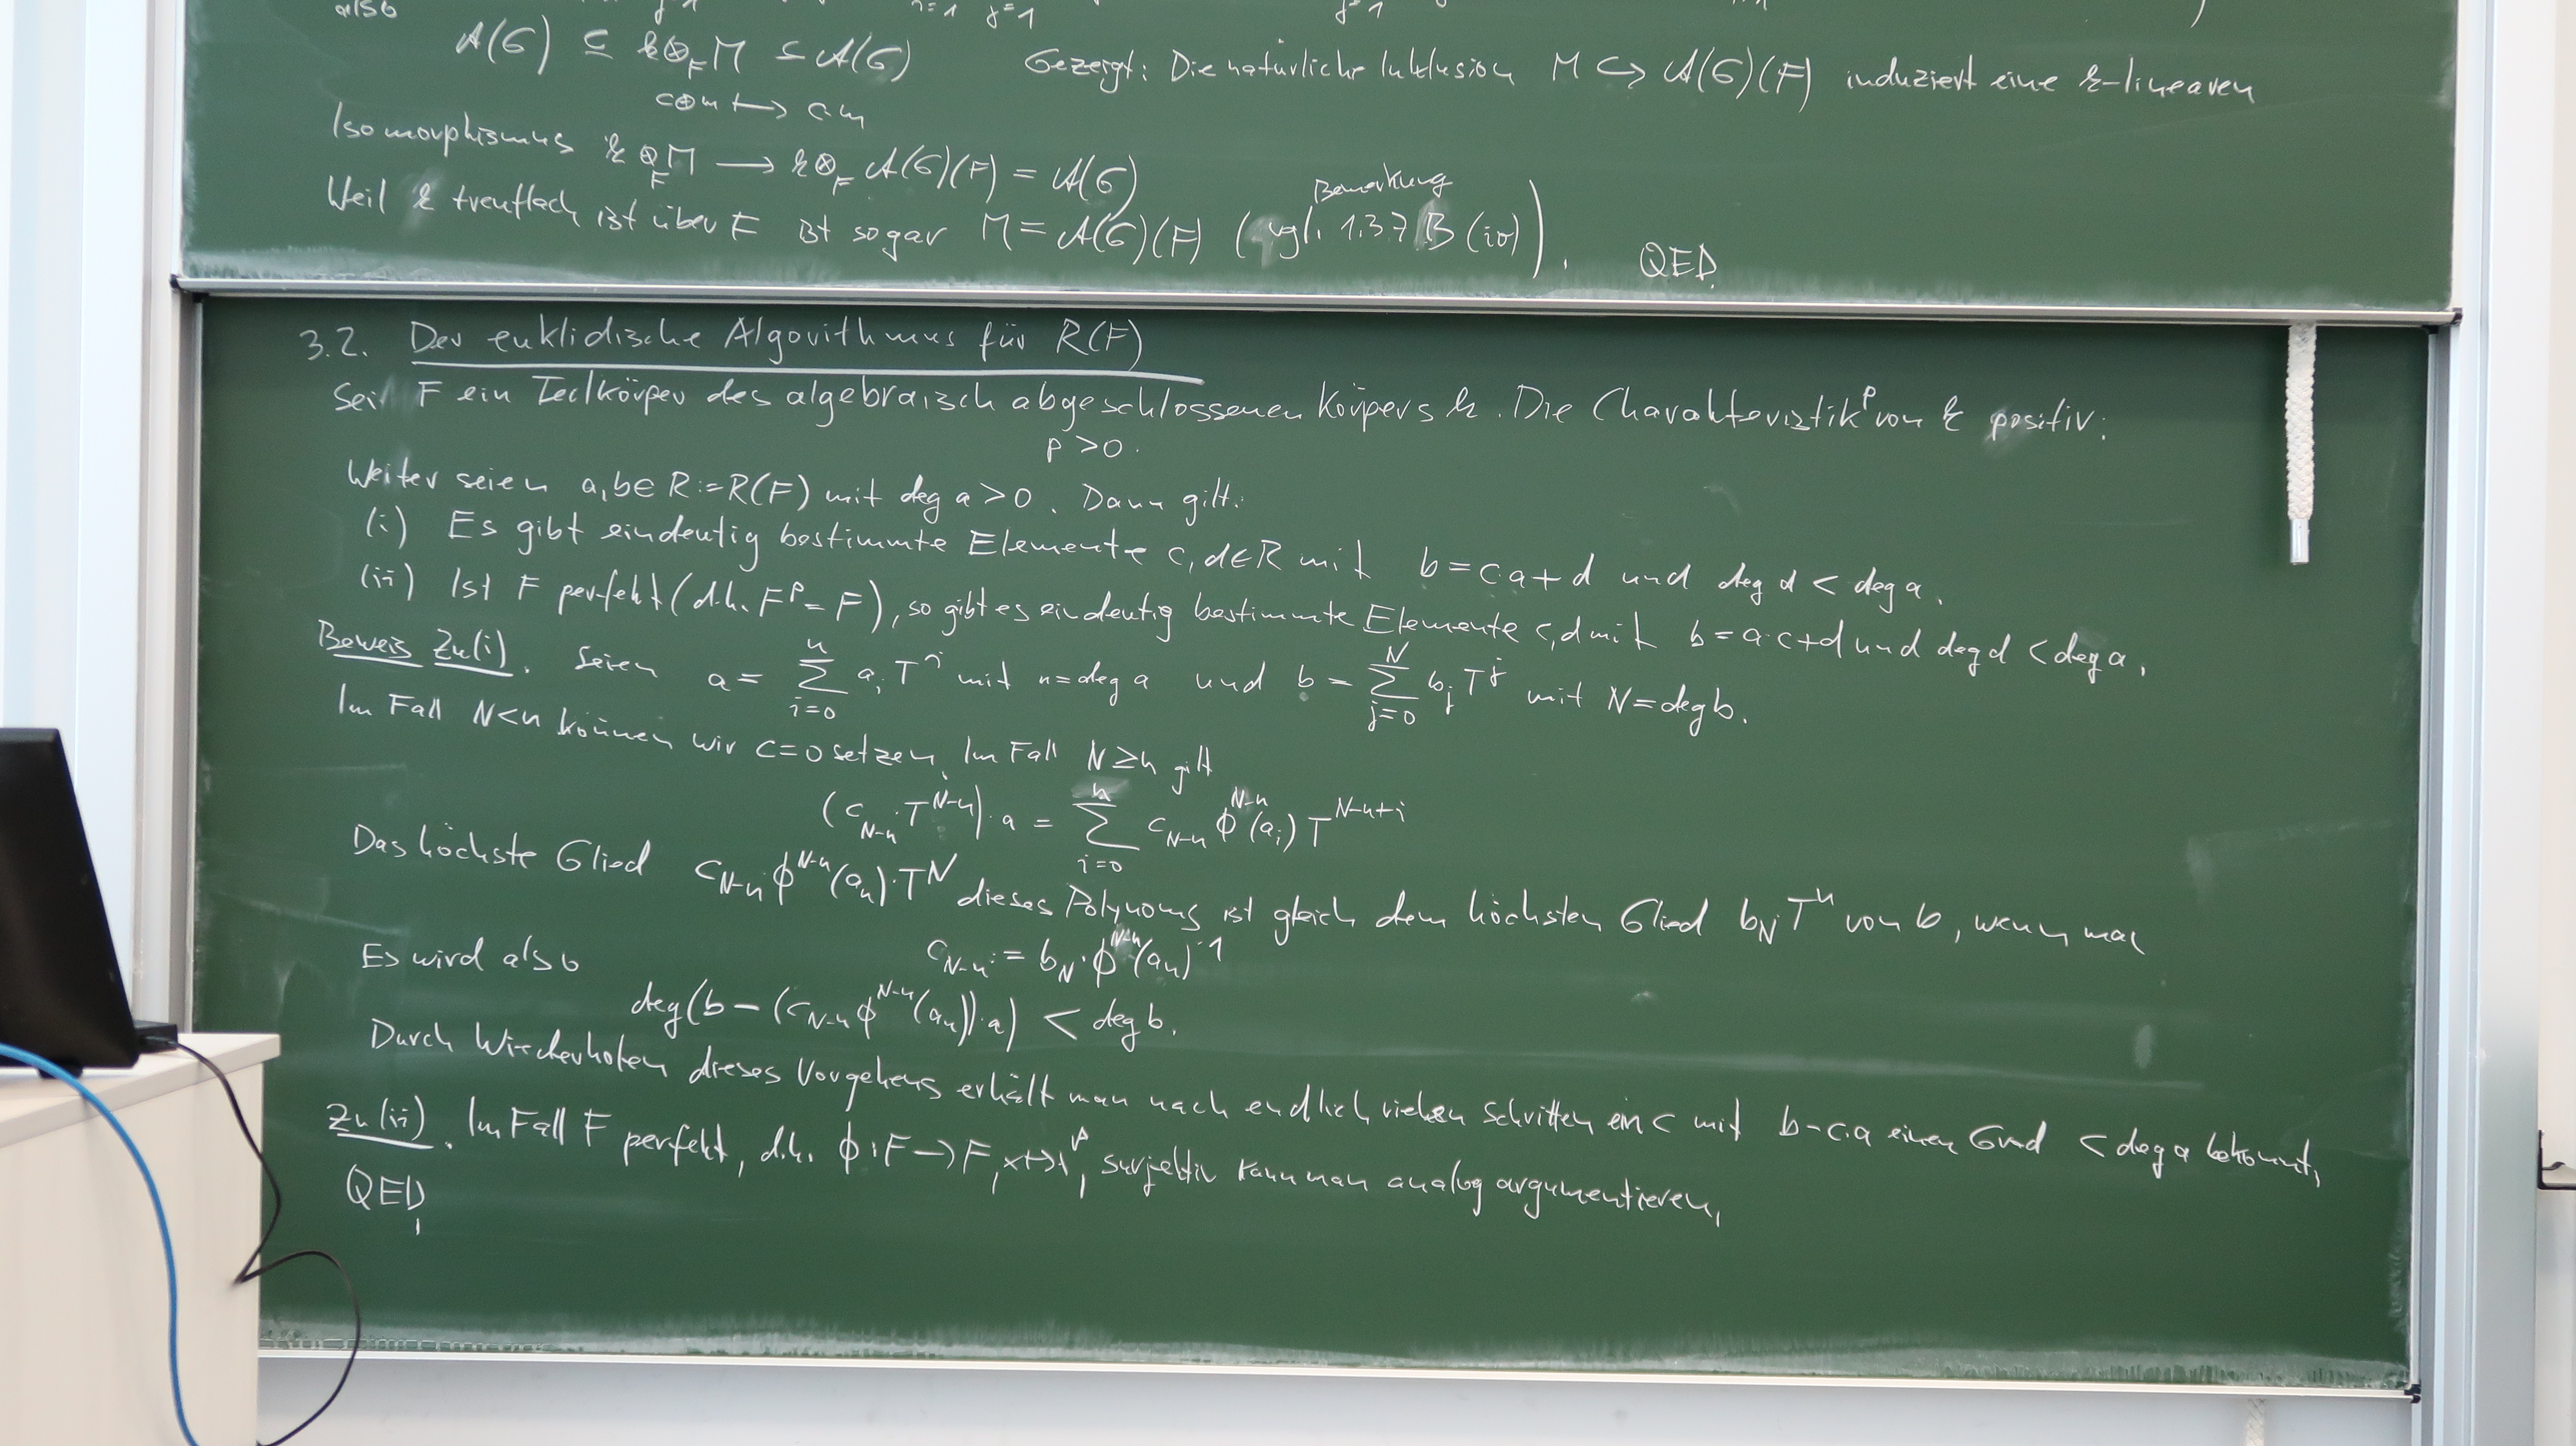 also
A(G) ⊆ k⊗_F M ⊆ A(G) Gezeigt: Die natürliche Inklusion M ↪ A(G)(F) induziert eine k-linearen
c⊗m ↦ cm
Isomorphismus k⊗_F M ⟶ k⊗_F A(G)(F) = A(G)
Weil k treuflach ist über F ist sogar M = A(G)(F) (vgl. Bemerkung 1.3.7 B (iv)). QED.
3.2. Der euklidische Algorithmus für R(F)
Sei F ein Teilkörper des algebraisch abgeschlossenen Körpers k. Die Charakteristik p von k positiv:
p > 0.
Weiter seien a, b ∈ R := R(F) mit deg a > 0. Dann gilt:
(i) Es gibt eindeutig bestimmte Elemente c, d ∈ R mit b = c·a + d und deg d < deg a.
(ii) Ist F perfekt (d.h. F^p = F), so gibt es eindeutig bestimmte Elemente c, d mit b = a·c + d und deg d < deg a.
Beweis Zu (i). Seien a = ∑_{i=0}^{n} a_i T^i mit n = deg a und b = ∑_{j=0}^{N} b_j T^j mit N = deg b.
Im Fall N < n können wir c = 0 setzen. Im Fall N ≥ n gilt
(c_{N-n}·T^{N-n})·a = ∑_{i=0}^{n} c_{N-n} ϕ^{N-n}(a_i) T^{N-n+i}
Das höchste Glied c_{N-n}·ϕ^{N-n}(a_n)·T^N dieses Polynoms ist gleich dem höchsten Glied b_N T^n von b, wenn man
c_{N-n} := b_N·ϕ^{N-n}(a_n)^{-1}
Es wird also
deg(b - (c_{N-n} ϕ^{N-n}(a_n))·a) < deg b.
Durch Wiederholen dieses Vorgehens erhält man nach endlich vielen Schritten ein c mit b - c·a einen Grad < deg a bekommt.
Zu (ii). Im Fall F perfekt, d.h. ϕ: F → F, x ↦ x^p, surjektiv kann man analog argumentieren.
QED.